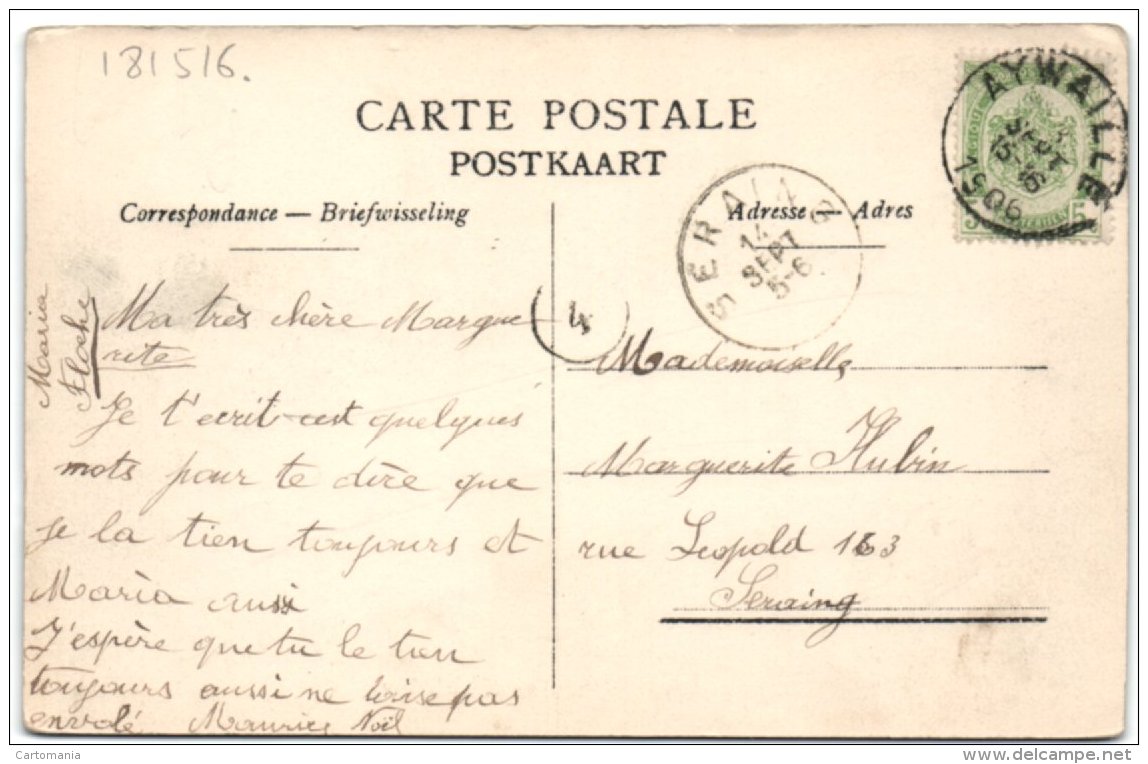 181516.
CARTE POSTALE
POSTKAART
Correspondance — Briefwisseling
Adresse — Adres
AYWAILLE
SEPT
1906
5
SERAING
14
SEPT
5-6
4
Maria
Floche
Ma très chère Margue
rite
Je t'ecrit cest quelques
mots pour te dire que
je la tien toujours et
Maria aussi
J'espère que tu le tien
toujours aussi ne loise pas
envolé Maurice Noël
Mademoiselle
Marguerite Hubin
rue Leopold 163
Seraing
Cartomania
delcampe.net